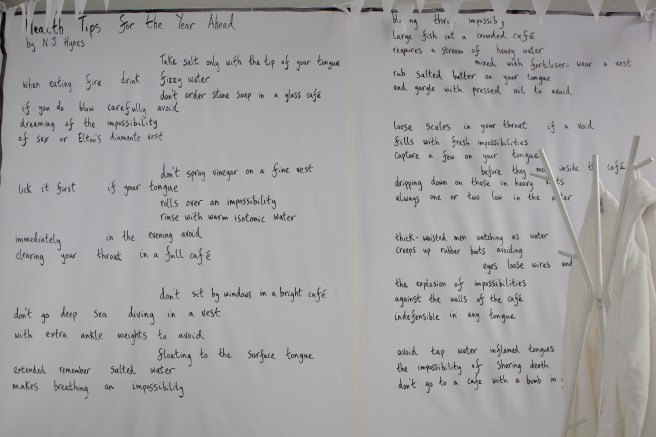 Health Tips for the Year Ahead
by N.J. Hynes
Take salt only with the tip of your tongue
when eating fire drink fizzy water
don't order stone soup in a glass café
if you do blow carefully avoid
dreaming of the impossibility
of sex or Elton's diamante vest
don't spray vinegar on a fine vest
lick it first if your tongue
rolls over an impossibility
rinse with warm isotonic water
immediately in the evening avoid
clearing your throat in a full café
don't sit by windows in a bright café
don't go deep sea diving in a vest
with extra ankle weights to avoid
floating to the surface tongue
extended remember salted water
makes breathing an impossibility
large fish in a crowded café
requires a stream of heavy water
mixed with fertiliser - wear a vest
rub salted butter on your tongue
and gargle with pressed oil to avoid
loose scales in your throat if a void
fills with fresh impossibilities
capture a few on your tongue
before they inside the café
dripping down on those in heavy
always one or two low in the
thick-waisted men watching as water
creeps up rubber boots avoiding
eyes loose wires and
the explosion of impossibilities
against the walls of the café
indefensible in any tongue
avoid tap water inflamed tongues
the impossibility of sharing death
don't go to a café with a bomb in